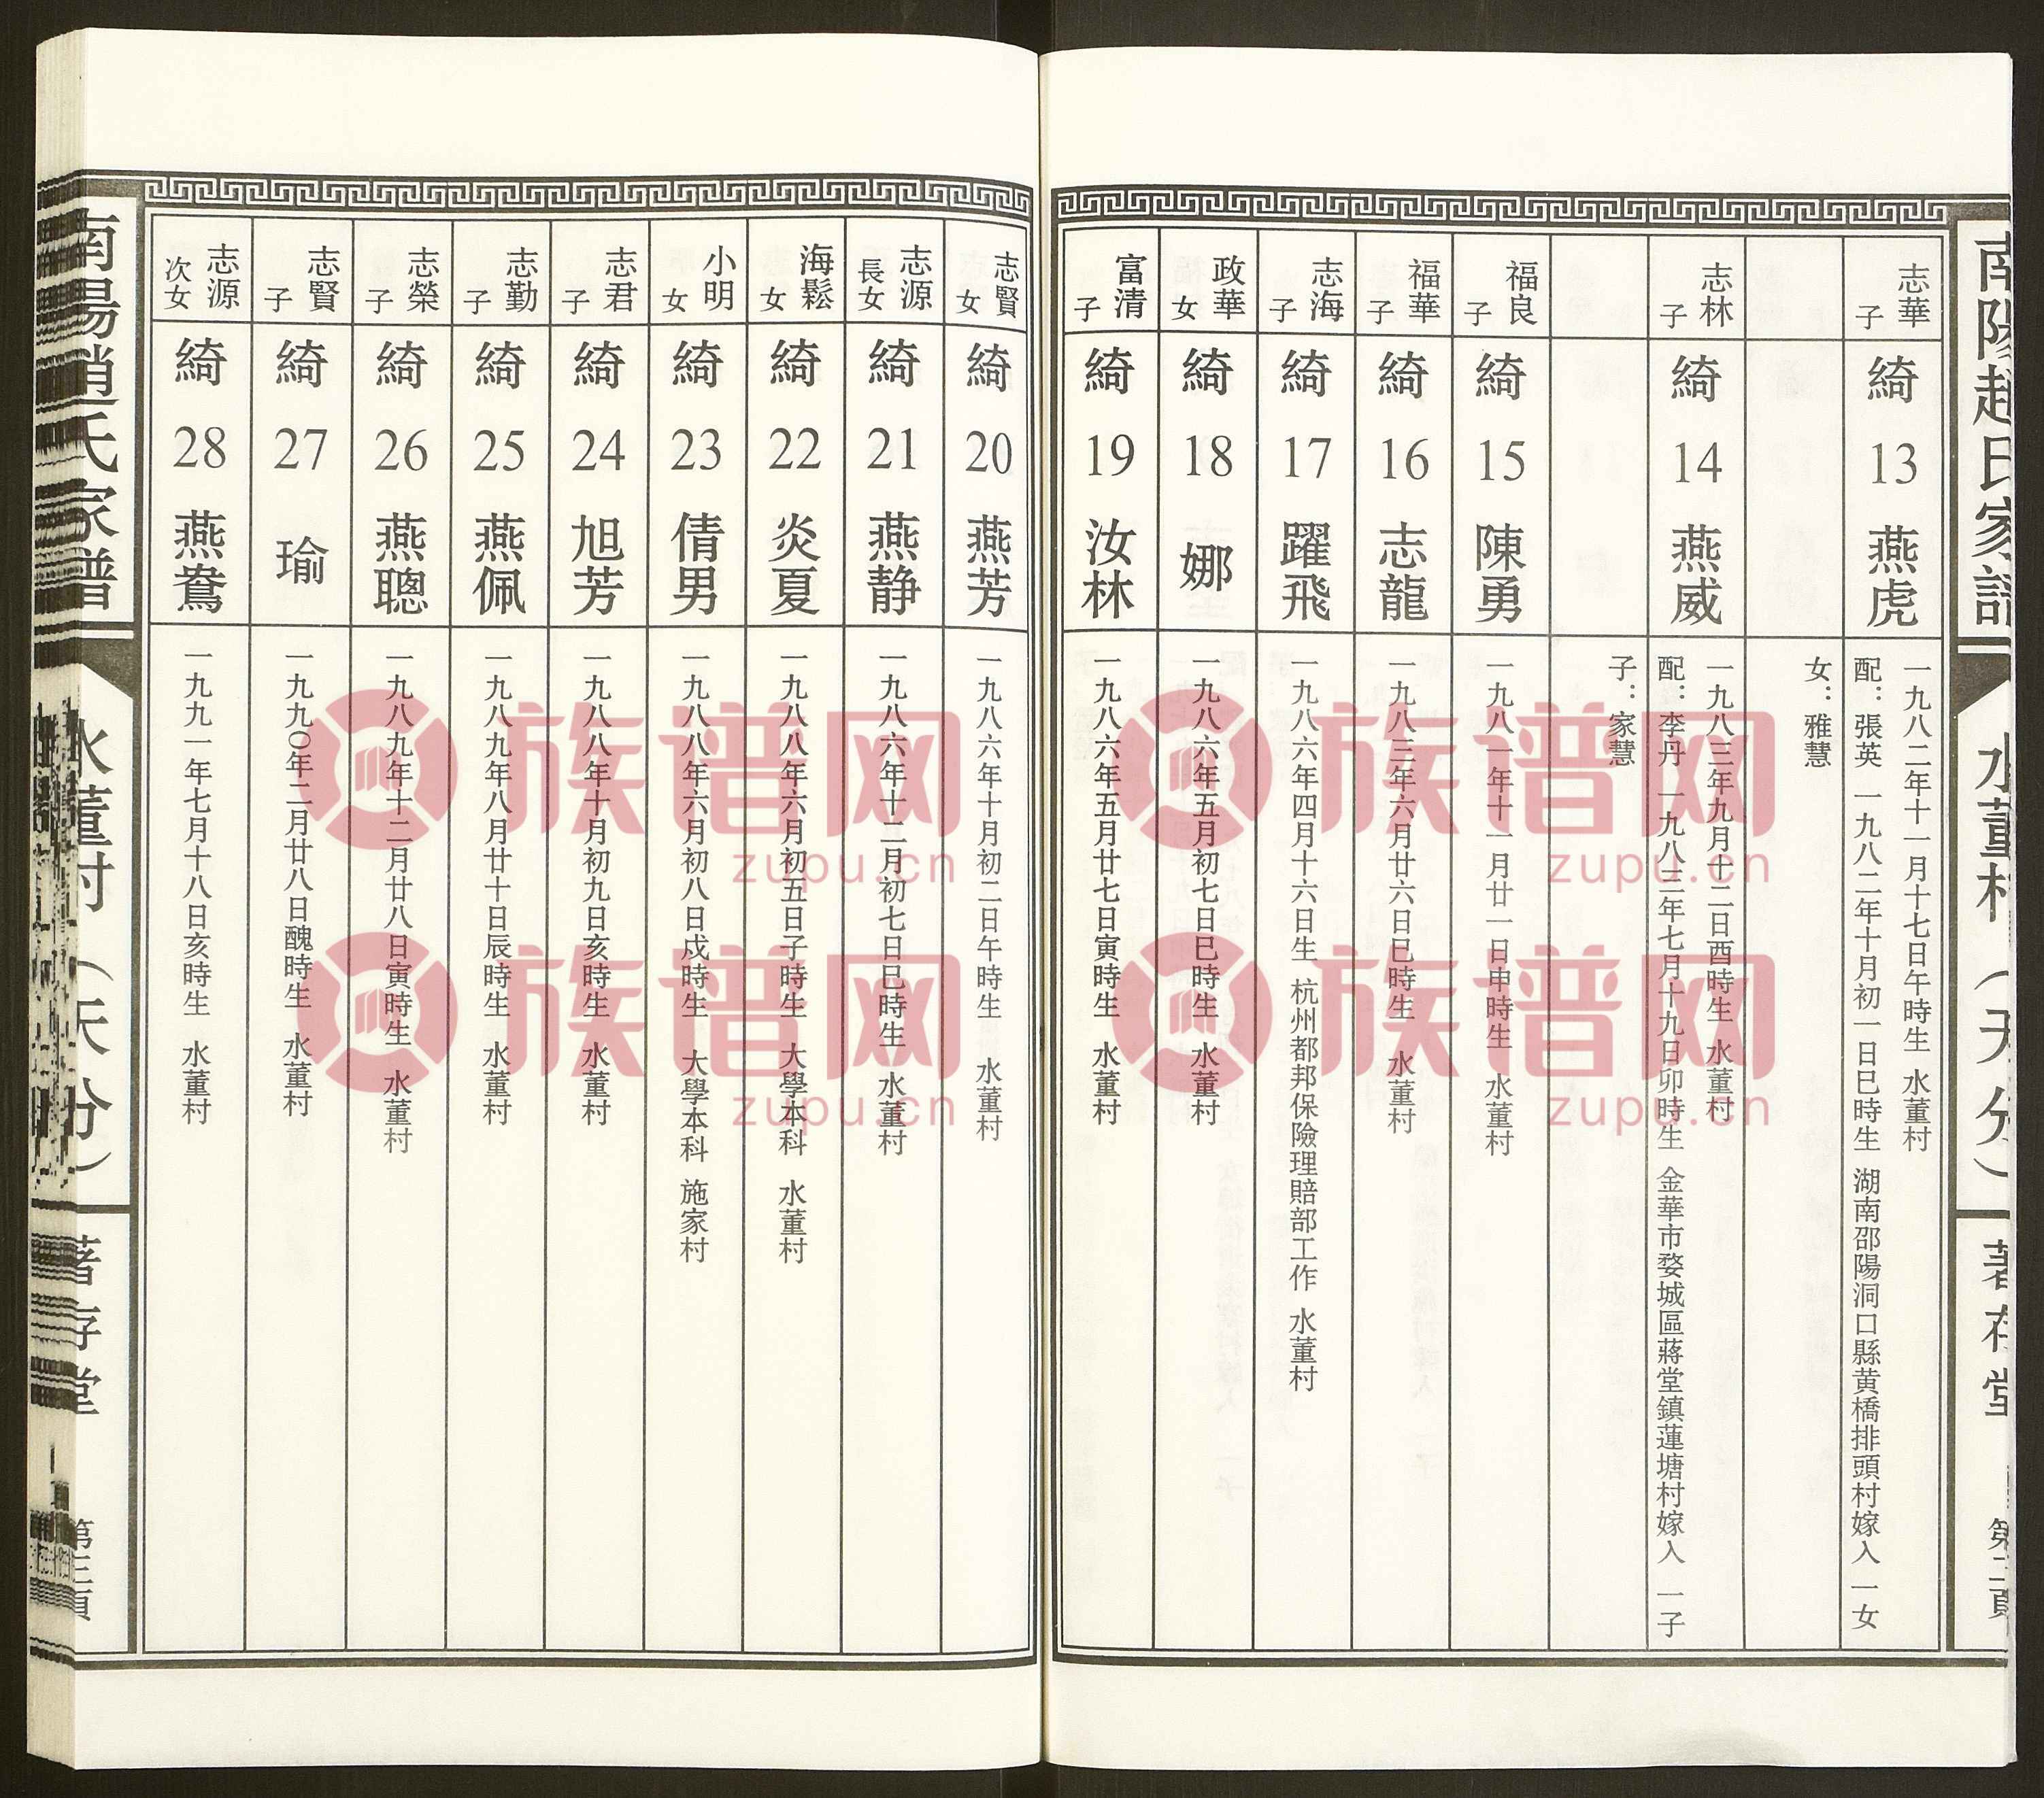 南陽趙氏家譜
水董村（天分）
著存堂
第二頁
志華
子
綺
13
燕虎
一九八二年十一月十七日午時生 水董村
配：張英 一九八二年十月初一日巳時生 湖南邵陽洞口縣黄橋排頭村嫁入 一女
女：雅慧
志林
子
綺
14
燕威
一九八三年九月十二日酉時生 水董村
配：李丹 一九八三年七月十九日卯時生 金華市婺城區蔣堂鎮蓮塘村嫁入 一子
子：家慧
福良
子
綺
15
陳勇
一九八一年十一月廿一日申時生 水董村
福華
子
綺
16
志龍
一九八三年六月廿六日巳時生 水董村
志海
子
綺
17
躍飛
一九八六年四月十六日生 杭州都邦保險理賠部工作 水董村
政華
女
綺
18
娜
一九八六年五月初七日巳時生 水董村
富清
子
綺
19
汝林
一九八六年五月廿七日寅時生 水董村
志賢
女
綺
20
燕芳
一九八六年十月初二日午時生 水董村
志源
長女
綺
21
燕静
一九八六年十二月初七日巳時生 水董村
海鬆
女
綺
22
炎夏
一九八八年六月初五日子時生 大學本科 水董村
小明
女
綺
23
倩男
一九八八年六月初八日戍時生 大學本科 施家村
志君
子
綺
24
旭芳
一九八八年十月初九日亥時生 水董村
志勤
子
綺
25
燕佩
一九八九年八月廿十日辰時生 水董村
志榮
子
綺
26
燕聰
一九八九年十二月廿八日寅時生 水董村
志賢
子
綺
27
瑜
一九九〇年二月廿八日醜時生 水董村
志源
次女
綺
28
燕鴦
一九九一年七月十八日亥時生 水董村
南陽趙氏家譜
水董村（天分）
著存堂
第三頁
族谱网
zupu.cn
族谱网
zupu.cn
族谱网
zupu.cn
族谱网
zupu.cn